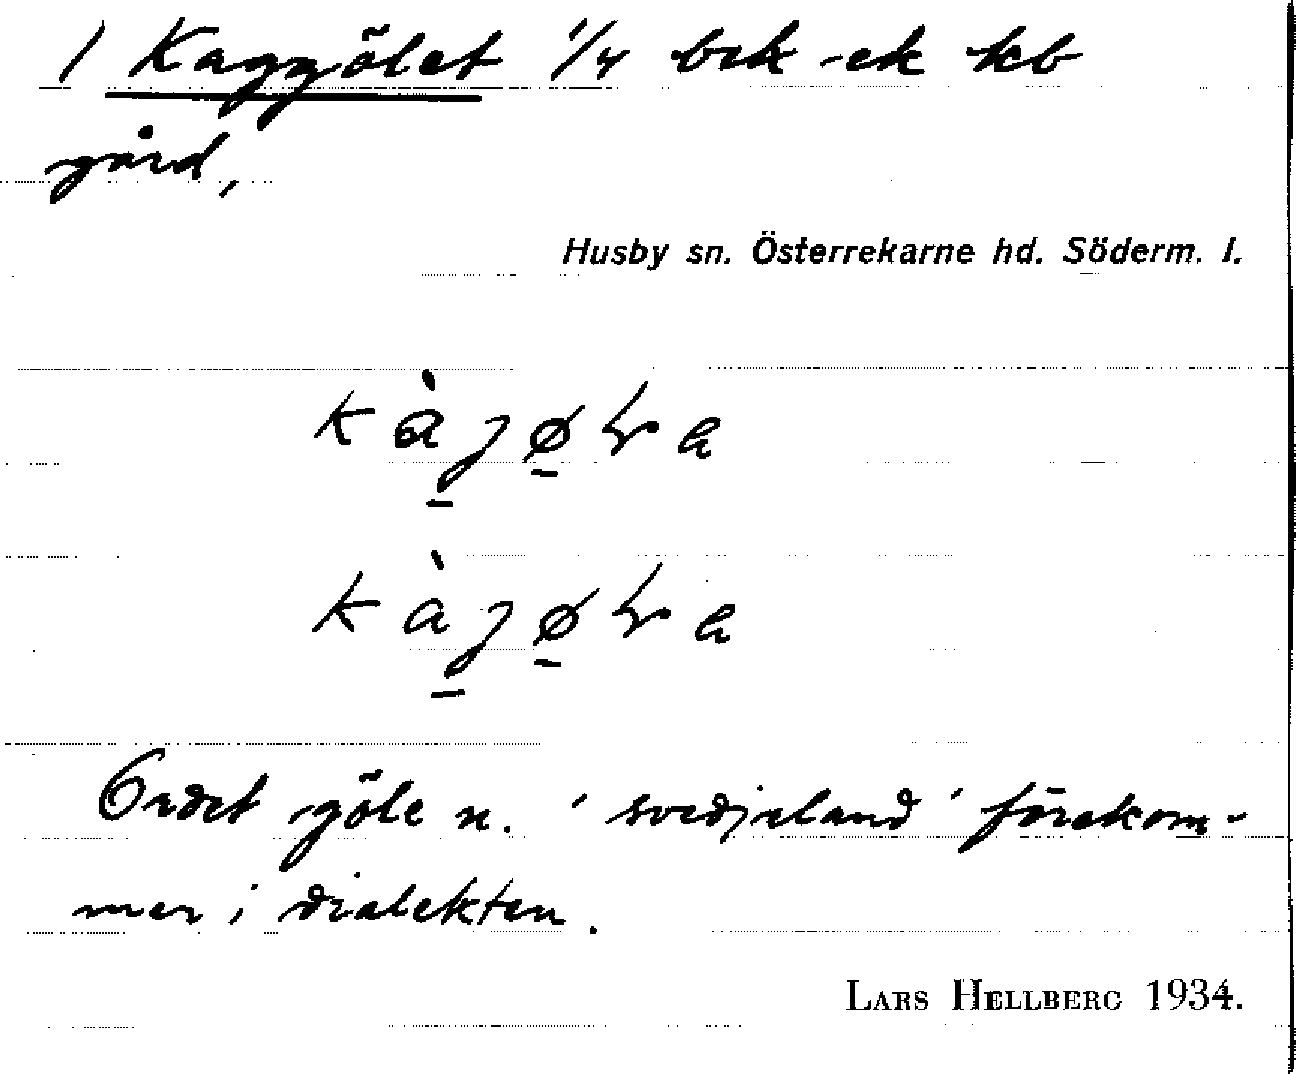 1 Kaggölet 1/4 bek -ek kb
gård,
Husby sn. Österrekarne hd. Söderm. l.
Ordet göle n. 'svedjeland' förekom-
mer i dialekten.
LARS HELLBERG 1934.